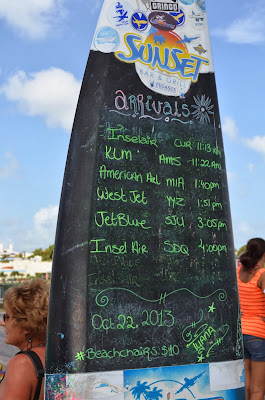 GRINGO
SUNSET
BAR & GRILL
ARRIVALS
Inselair CUR 11:13
KLM AMS 11:22 am
American Airl MIA 1:40pm
West Jet YYZ 1:51pm
JetBlue SJU 3:05pm
Insel Air SDQ 4:00pm
Oct 22, 2013
#Beachchairs $10